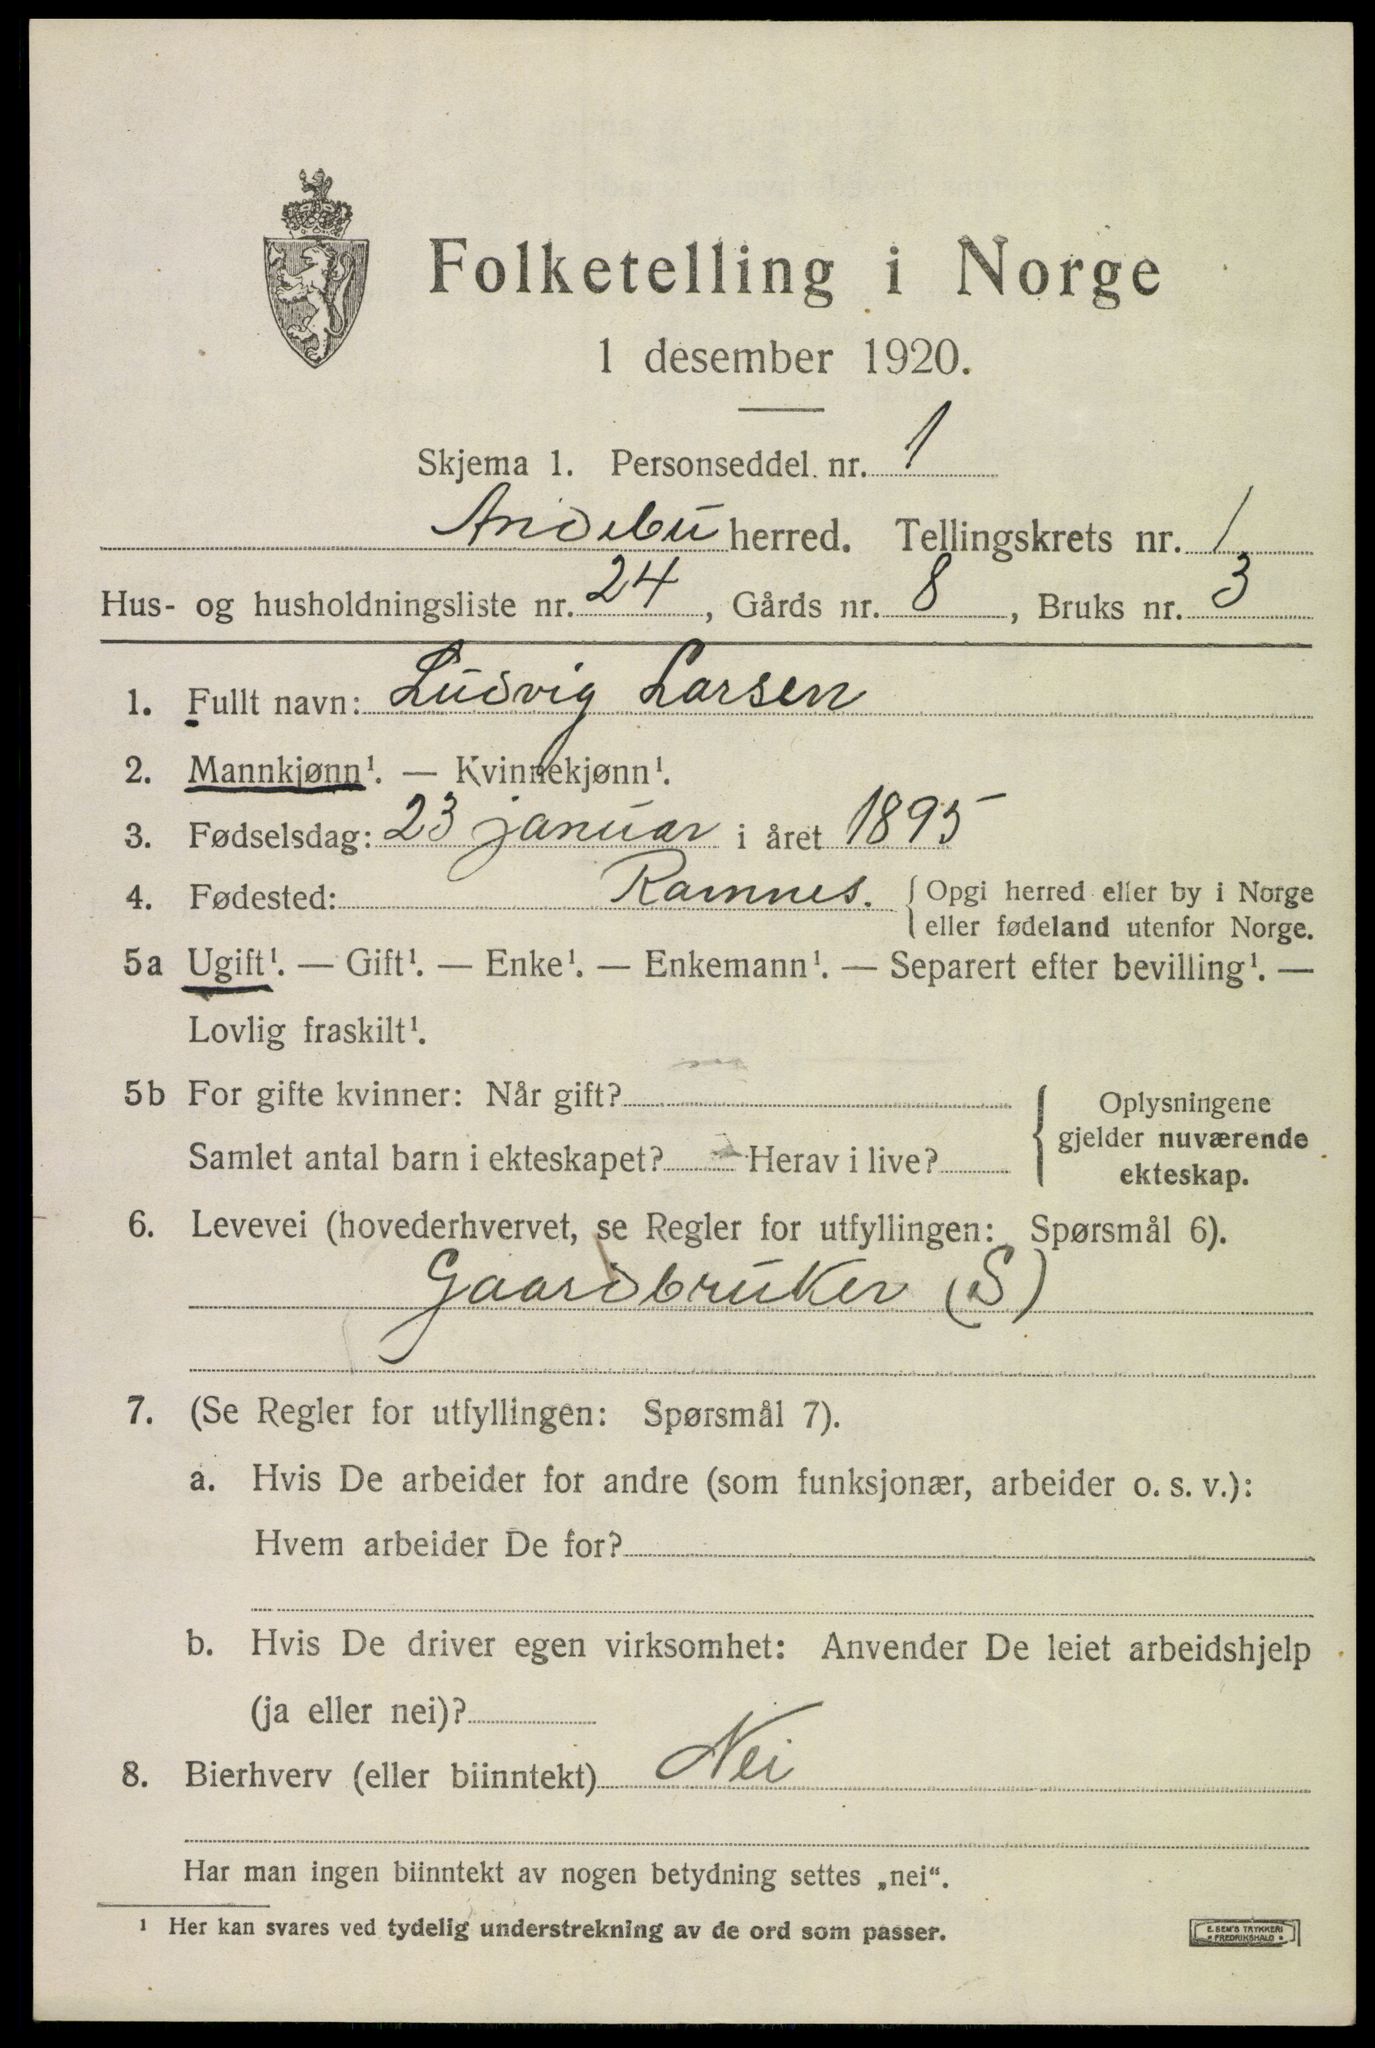 Folketelling i Norge
1 desember 1920.
Skjema 1. Personseddel nr. 1
Andebu herred. Tellingskrets nr. 1
Hus- og husholdningsliste nr. 24, Gårds nr. 8, Bruks nr. 3
1. Fullt navn: Ludvig Larsen
2. Mannkjønn¹. — Kvinnekjønn¹.
3. Fødselsdag: 23 januar i året 1895
4. Fødested: Ramnes. { Opgi herred eller by i Norge
eller fødeland utenfor Norge.
5a Ugift¹. — Gift¹. — Enke¹. — Enkemann¹. — Separert efter bevilling¹. —
Lovlig fraskilt¹.
5b For gifte kvinner: Når gift?
Samlet antal barn i ekteskapet? Herav i live?
Oplysningene
gjelder nuværende
ekteskap.
6. Levevei (hovederhvervet, se Regler for utfyllingen: Spørsmål 6).
Gaardbruker (S)
7. (Se Regler for utfyllingen: Spørsmål 7).
a. Hvis De arbeider for andre (som funksjonær, arbeider o. s. v.):
Hvem arbeider De for?
b. Hvis De driver egen virksomhet: Anvender De leiet arbeidshjelp
(ja eller nei)?
8. Bierhverv (eller biinntekt) Nei
Har man ingen biinntekt av nogen betydning settes „nei“.
¹ Her kan svares ved tydelig understrekning av de ord som passer.
E. SEM'S TRYKKERI
• FREDRIKSHALD •